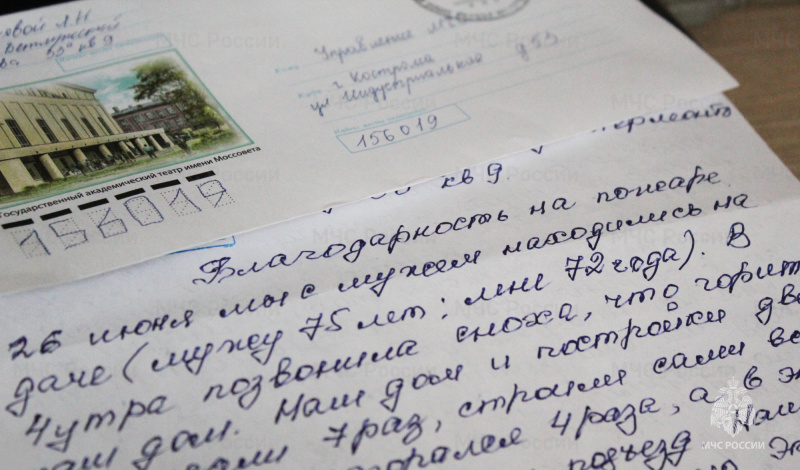 овой Л.Н
Ветлужской
ва 55 кв 9
Управление МЧС
г Кострома
ул Индустриальная д 53
156019
Государственный академический театр имени Моссовета
156019
кв 9
Благодарность на пожаре
26 июня мы с мужем находились на
даче (мужу 75 лет; мне 72 года). В
4 утра позвонила сноха, что горит
дом. Наш дом и постройки
7 раз, строили сами
4 раза, а в
подъезд
МЧС РОССИИ